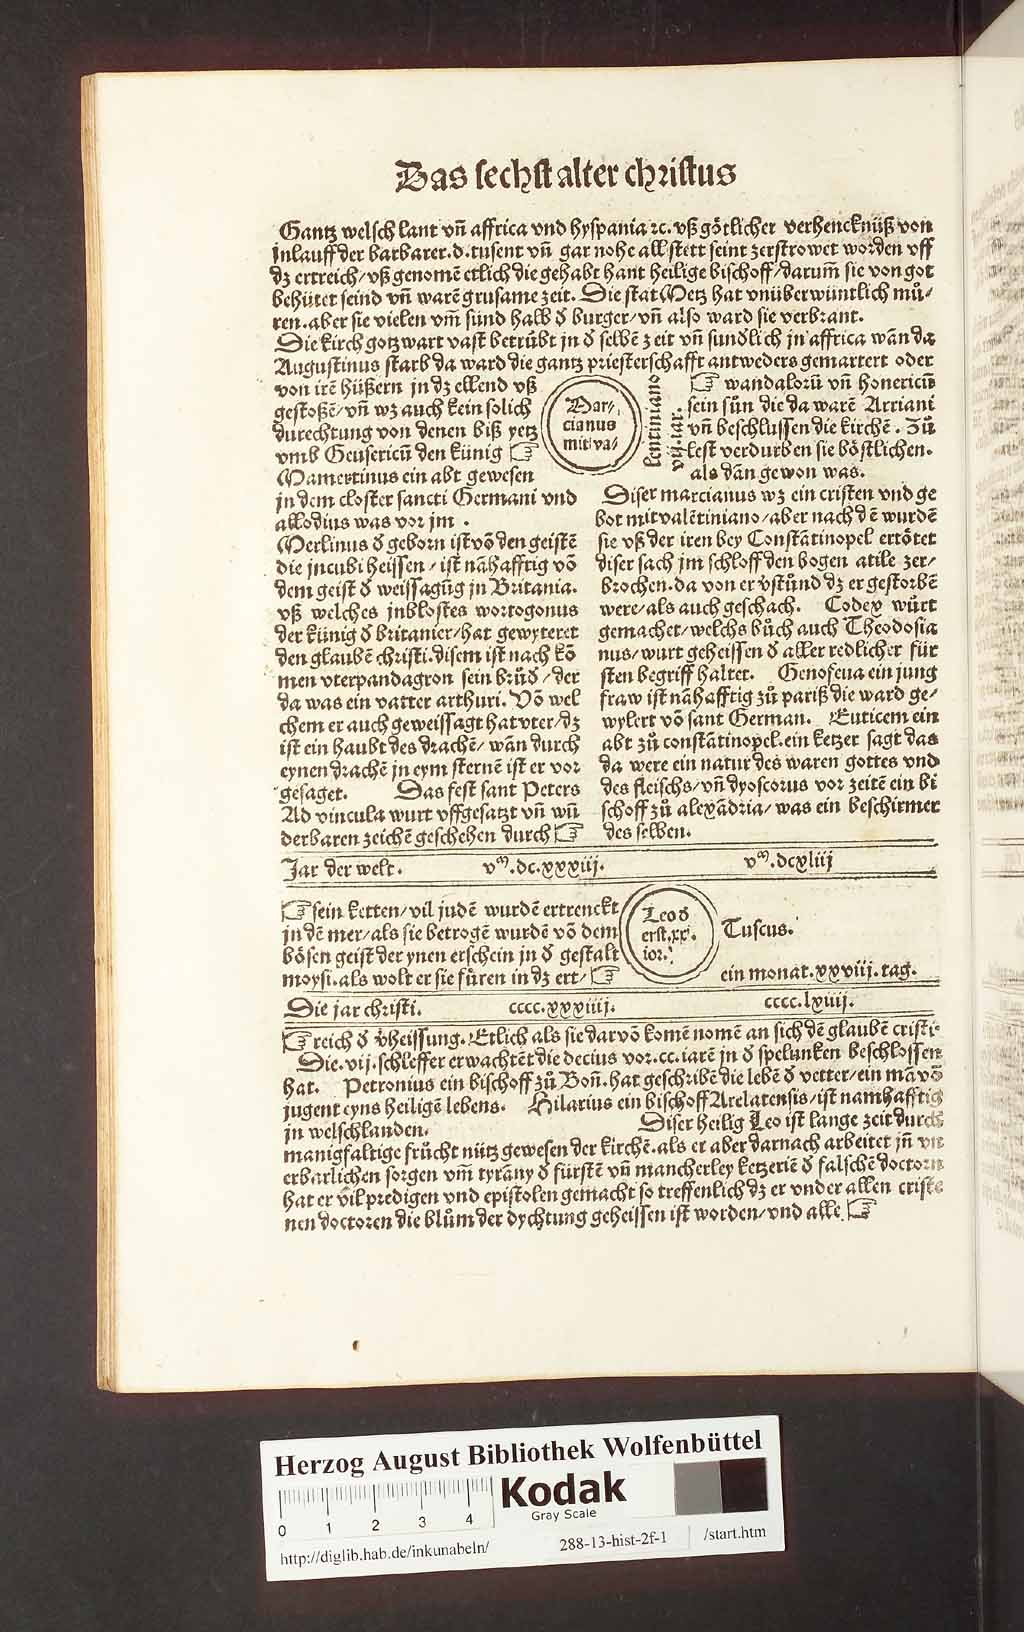 Das sechst alter christus
Gantz welsch lant vñ affrica vnd hyspania ꝛc. vß götlicher verhencknüß von
jnlauff der barbarer.d.tusent vñ gar nohe all stett seint zerströwet worden vff
dz ertreich/vß genomē etlich die gehabt hant heilige bischoff/darum̃ sie von got
behütet seind vñ warē grusame zeit. Die stat Metz hat vnüberwüntlich mů⸗
ren.aber sie vielen vm̃ sünd halb ð burger/vñ also ward sie verbrant.
Die kirch gotz wart vast betrübt jn ð selbē zeit vñ sundlich jn affrica wān da
Augustinus starb da ward die gantz priesterschafft antweders gemartert oder
von irē hüßern jn dz ellend vß
gestoßē/vñ wz auch kein solich
durechtung von denen biß yetz
vmb Geusericū den künig ☞
Mamertinus ein abt gewesen
jn dem closter sancti Germani vnd
allodius was vor jm.
Merlinus ð geborn ist vō den geistē
die jncubi heissen/ist nāhafftig vō
dem geist ð weissagūg jn Britania.
vß welches jnblostes wortogonus
der künig ð britanier/hat gewyteret
den glaubē christi.disem ist nach kō
men vterpandagron sein brůð/der
da was ein vatter arthuri. Vō wel
chem er auch geweissagt hat vter/dz
ist ein haubt des drachē/wān durch
eynen drachē jn eym sternē ist er vor
gesaget. Das fest sant Peters
Ad vincula wurt vffgesatzt vñ wū
derbaren zeichē geschehen durch ☞
Mar⸗
cianus
mit va⸗
lentiniano
vij.iar.
☞ wandalorū vñ honericū
sein sůn die da warē Arriani
vñ beschlussen die kirchē. Zů
lest verdurben sie böstlichen.
als dān gewon was.
Diser marcianus wz ein cristen vnd ge
bot mit valētiniano/aber nach dē wurdē
sie vß der iren bey Constātinopel ertötet
diser sach jm schloff den bogen atile zer⸗
brochen.da von er vstůnd dz er gestorbē
were/als auch geschach. Codex wůrt
gemachet/welchs bůch auch Theodosia
nus/wurt geheissen ð aller redlicher für
sten begriff haltet. Genofeua ein jung
fraw ist nāhafftig zů pariß die ward ge⸗
wylert vō sant German. Euticem ein
abt zů constātinopel.ein ketzer sagt das
da were ein natur des waren gottes vnd
des fleischs/vñ dyoscorus vor zeitē ein bi
schoff zů alexādria/was ein beschirmer
des selben.
Jar der welt. vᵐ.dc.xxxiij. vᵐ.dcxliij
☞ sein ketten/vil judē wurdē ertrenckt
jn dē mer/als sie betrogē wurdē vō dem
bösen geist der ynen erschein jn ð gestalt
moysi.als wolt er sie füren in dz ert/☞
Leo ð
erst.xxi.
ior.
Tuscus.
ein monat.xxviij.tag.
Die jar christi. cccc.xxxiiij. cccc.lxiiij.
☞ reich ð v̄heissung. Etlich als sie darvō komē nomē an sich dē glaubē cristi⸗
Die.vij.schleffer erwachtēt die decius vor.cc.iarē jn ð spelunken beschlossen
hat. Petronius ein bischoff zů Boñ.hat geschribē die lebē ð vetter/ein mā vō
jugent eyns heiligē lebens. Hilarius ein bischoff Arelatensis/ist namhafftig
jn welschlanden. Diser heilig Leo ist lange zeit durch
manigfaltige frücht nütz gewesen der kirchē.als er aber darnach arbeitet jñ
erbarlichen sorgen vm̃ tyrāny ð fürstē vñ mancherley ketzeriē ð falschē doctorn
hat er vil predigen vnd epistolen gemacht so treffenlich dz er vnder allen criste
nen doctoren die blům der dychtung geheissen ist worden/vnd alle ☞
Herzog August Bibliothek Wolfenbüttel
0 1 2 3 4
Kodak
Gray Scale
http://diglib.hab.de/inkunabeln/ 288-13-hist-2f-1 /start.htm